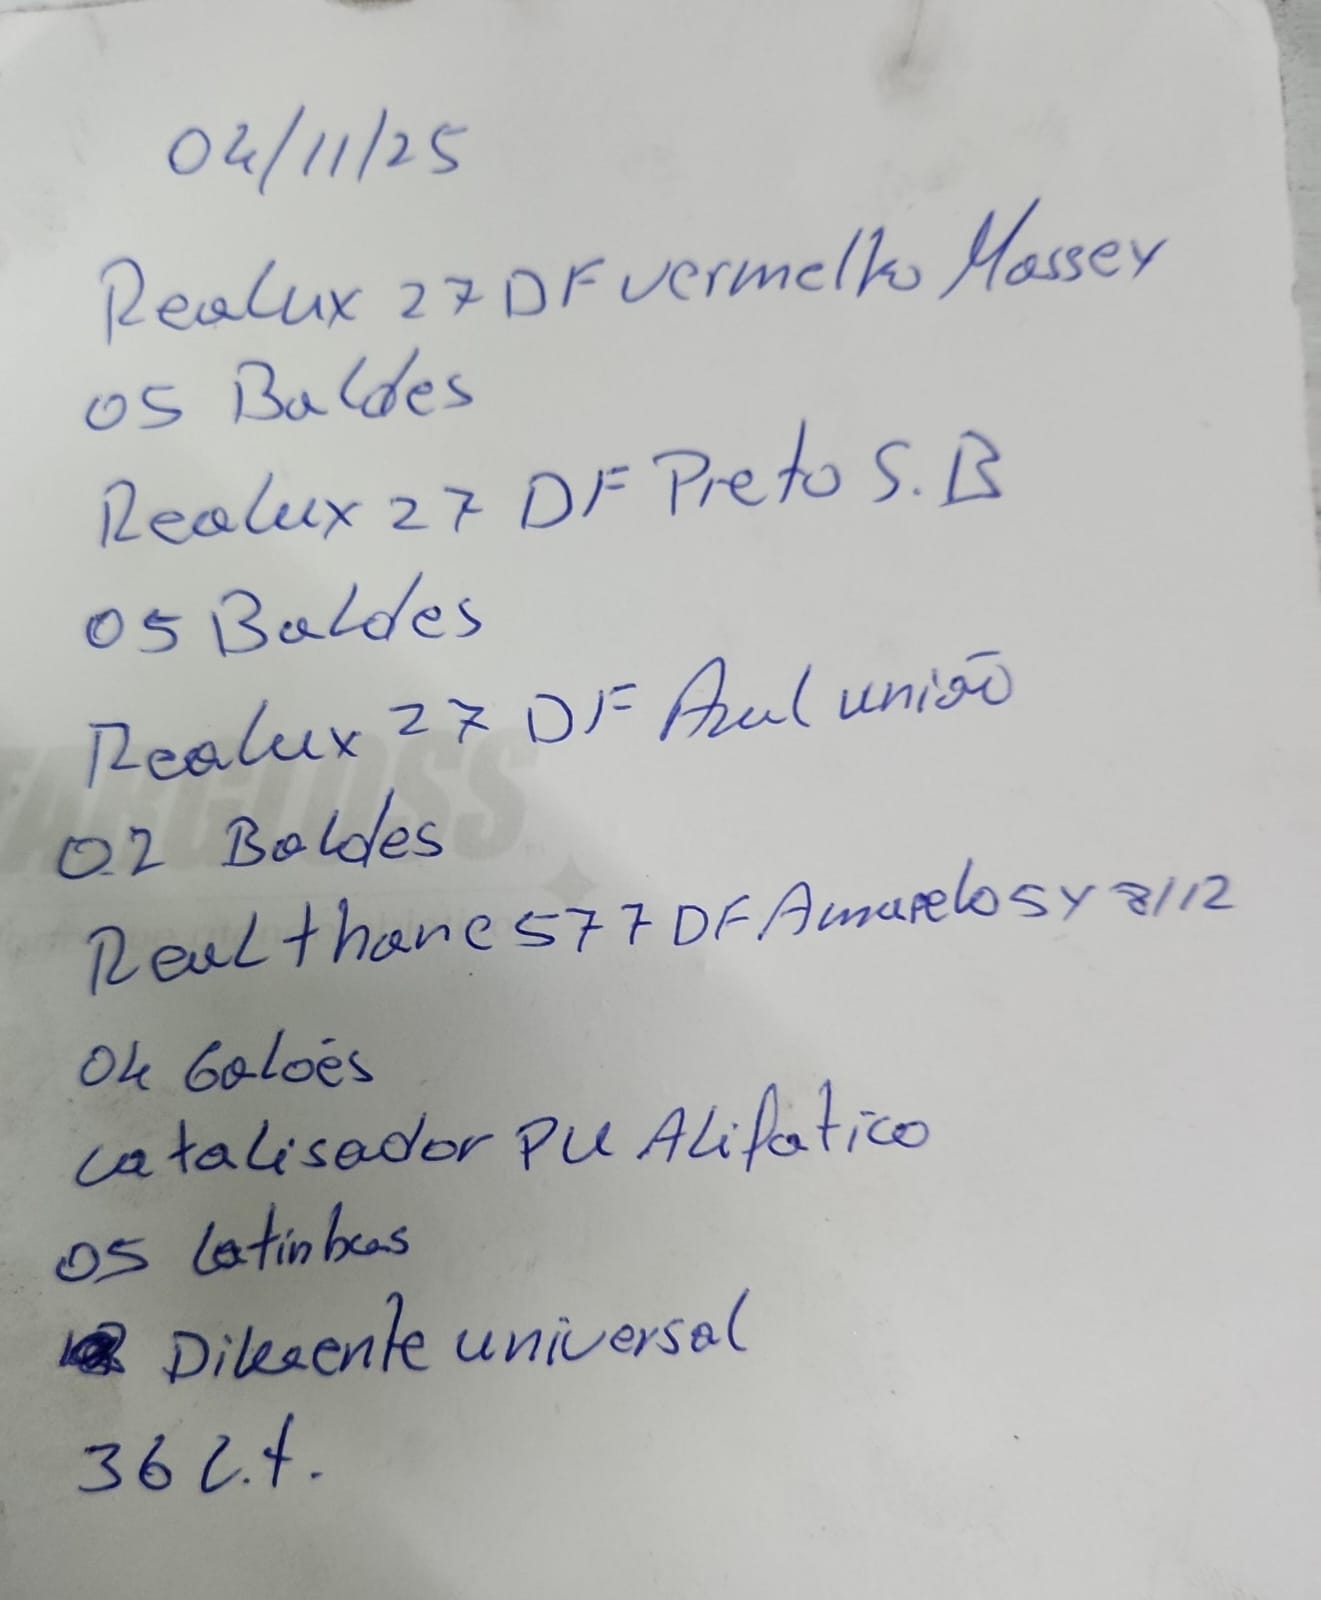 04/11/25
Realux 27 DF vermelho Massey
05 Baldes
Realux 27 DF Preto S.B
05 Baldes
Realux 27 DF Azul união
02 Baldes
Realthane 577 DF Amarelo 5Y 8/12
04 Galões
Catalisador PU Alifatico
05 Latinhas
Diluente universal
36 L.t.